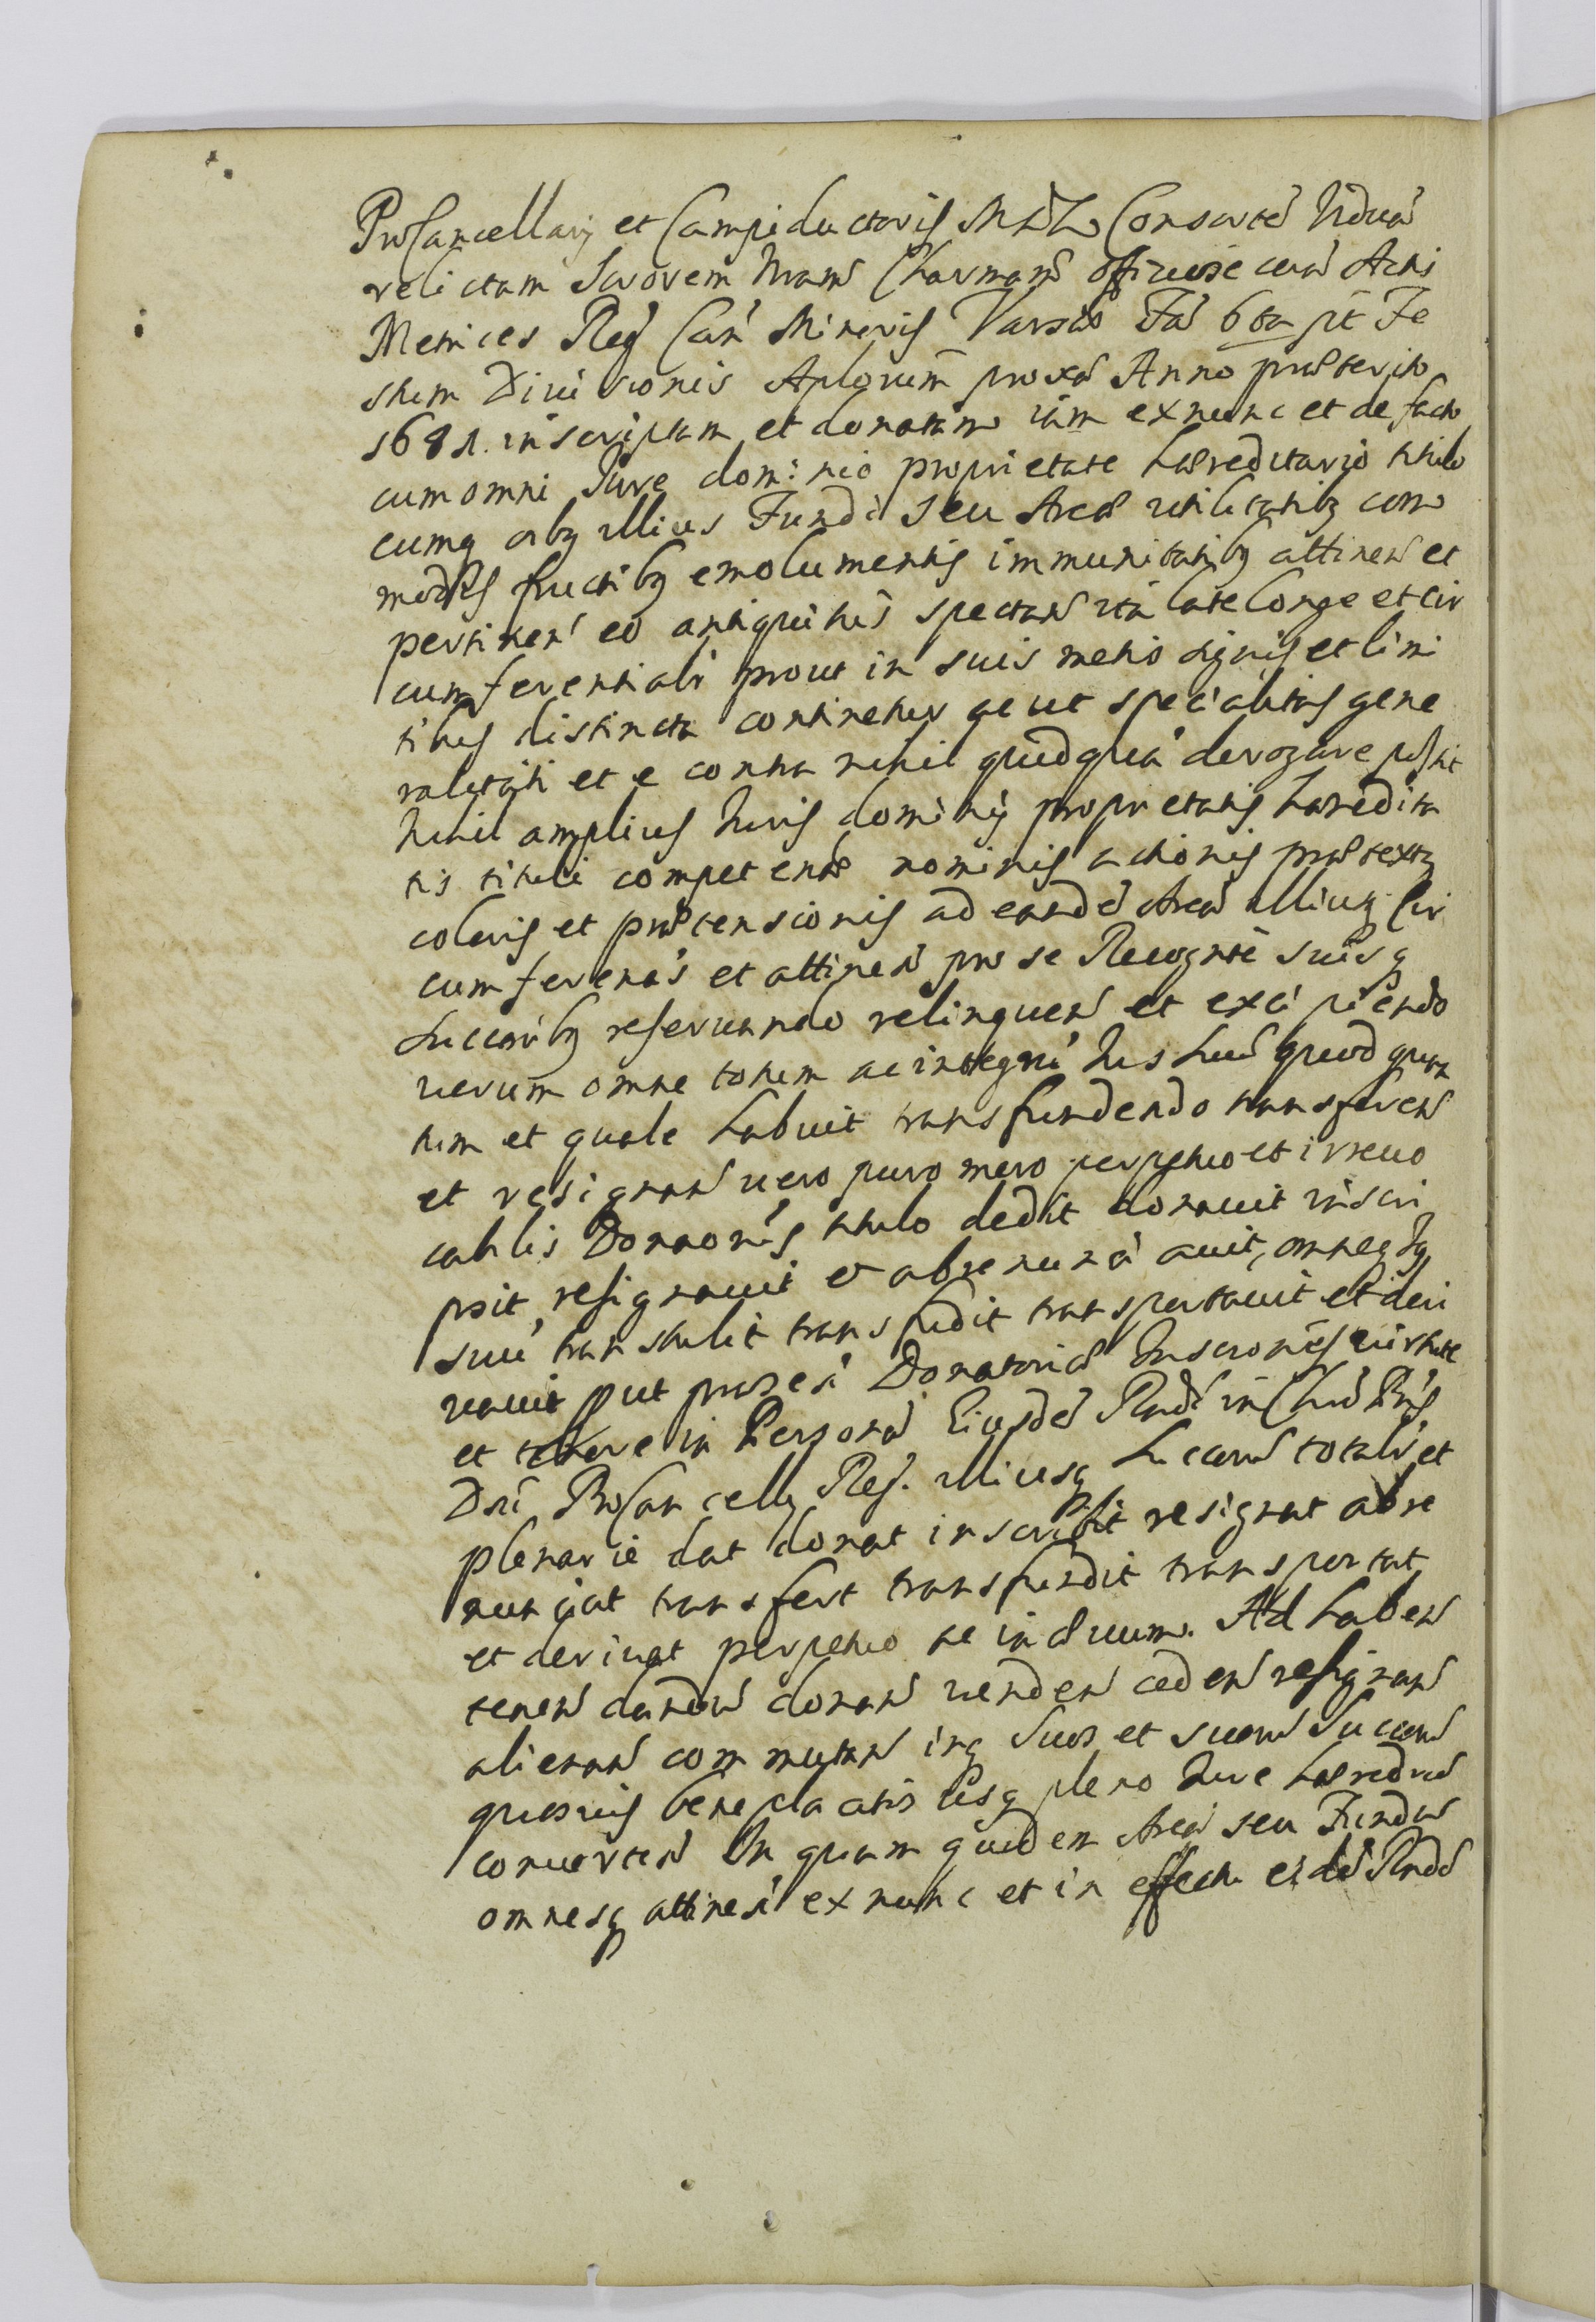 ProCancellarij et Campiductoris MDL Consortē Viduā
relictam Sororem Nram Charmam officiose corā Actis
Metrices Regñ Can Minoris Varsav Fer 6ta pt Fe
stum Divisionis Aplorum proxā Anno præterito
1681. inscriptam et donatam iam exnunc et de facto
cum omni Jure dominio proprietate hæreditario titulo
cumq oībq illius Fundi seu Areæ utilitatibq com
modis fructibq emolumentis immunitatibq attinen et
pertinen eo antiquitus spectan ita late longe et cir
cumferentialr prout in suis metis signis et limi
tibus distincta continetur ac ut specialitas gene
ralitati et e contra nihil quidquā derogare possit
Nihil amplius Juris dominij proprietatis hæredita
tis tituli competentæ nominis actionis prætextq
coloris et prætensionis ad eandē Areā illiusq Cir
cumferenās et attinen pro se Recognte suisq
Succoribq reservando relinquen et excipiendo
verum omne totum ac integrū Jus suū quod quan
tum et quale habuit transfundendo transferen
et resignan vero puro mero perpetuo et irrevo
cabilis Donaonis titulo dedit donavit inscri
psit, resignavit et abrenunciavit, omneq Jq
suū transtulit transfudit transportavit et deri
vavit put præseñ Donatoriæ Inscronis virtute
et robore in Personā Eiusdē Rndi in Chro Pris
Dni ProCancellq Reg. illiusq Succorū totalr et
plenarie dat donat inscribit resignat abre
nunciat transfert transfundit transportat
et derivat perpetuo ac in ævum. Ad haben
tenen dandū donan venden ceden resignan
alienan commutan inq suos et suorū Succorū
quosvis beneplacitos usq pleno Jure hæredrio
converten In quam quidem Areā seu Fundum
omnesq attineñ ex nunc et in effectu eidē Rndo